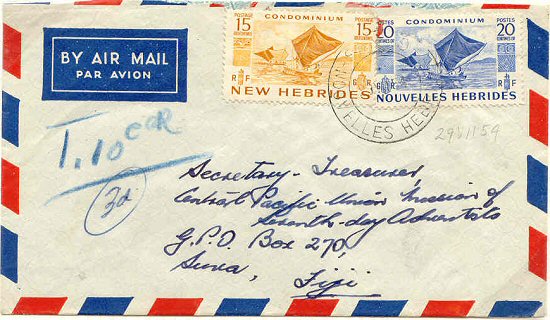 BY AIR MAIL
PAR AVION
POSTAGE
15
CENTIMES
CONDOMINIUM
15
R F
G R
NEW HEBRIDES
CONDOMINIUM
POSTES
20
CENTIMES
G R
R F
NOUVELLES HEBRIDES
ELLES HEB
T.10
29 V 1159
3d
Secretary-Treasurer,
Central Pacific Union Mission of
Seventh-day Adventists
G.P.O. Box 270,
Suva, Fiji